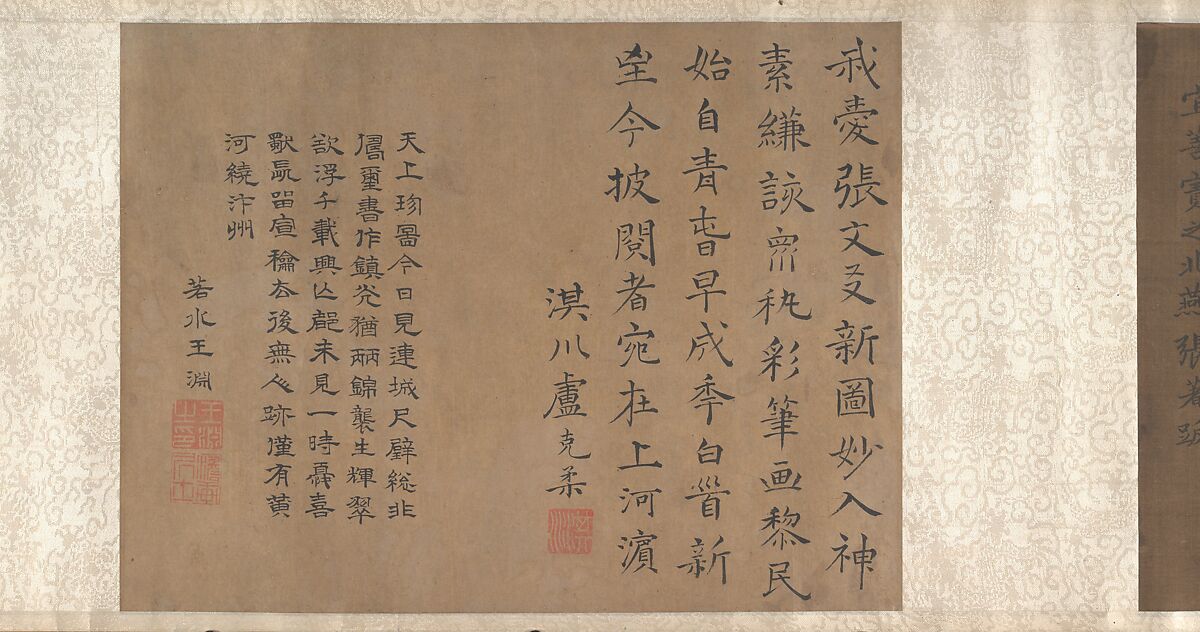 宜善寶之北燕張著跋
我愛張文友新圖妙入神
素縑該眾秇彩筆画黎民
始自青春早成秊白首新
至今披閱者宛在上河濵
淇川盧克柔
淇川
天上珍圖今日見連城尺璧総非
儔璽書作鎮光猶炳錦襲生輝翠
欲浮千載興亡都未見一時憂喜
歎長留宣龢去後無人跡僅有黃
河繞汴州
若水王淵
王淵之印